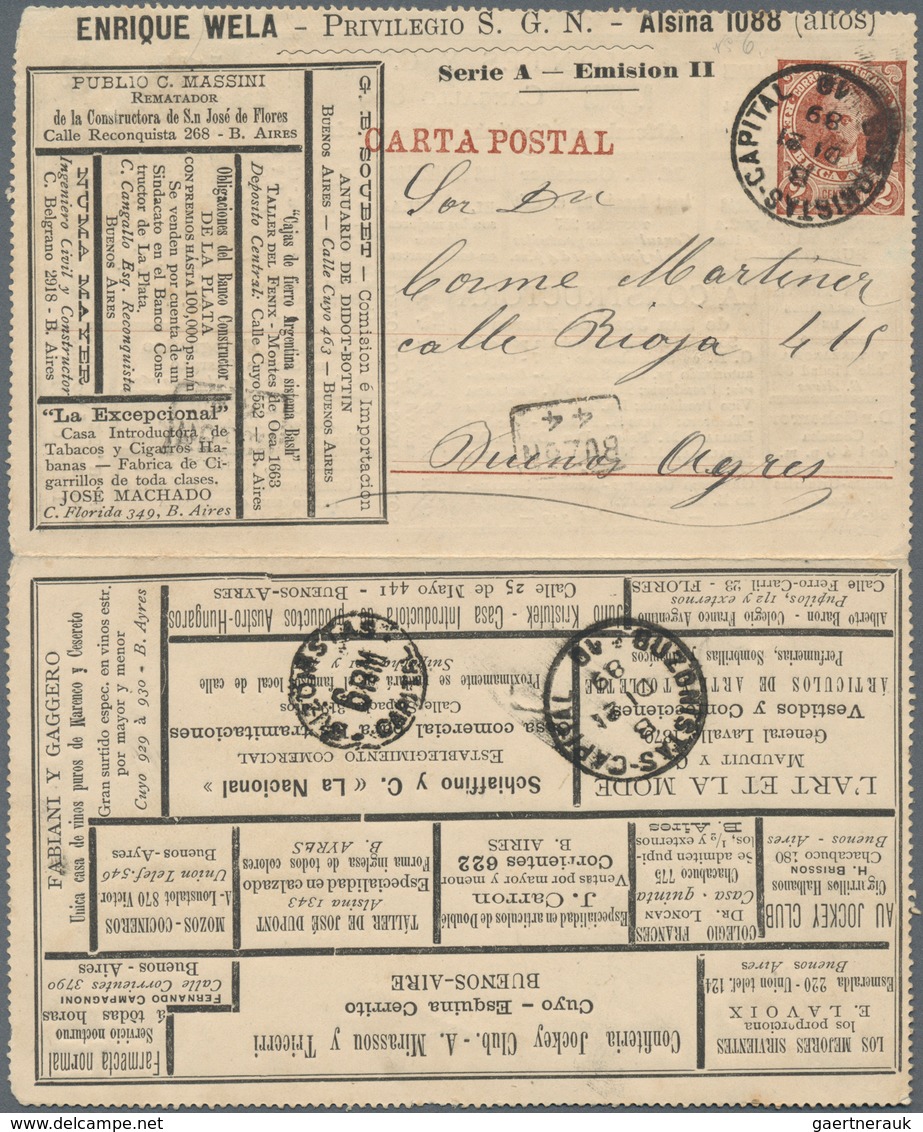 ENRIQUE WELA – PRIVILEGIO S. G. N. – Alsina 1088 (altos)
Serie A — Emision II
CARTA POSTAL
PUBLIO C. MASSINI
REMATADOR
de la Constructora de S.n José de Flores
Calle Reconquista 268 - B. AIRES
NUMA MAYER
Ingeniero Civil y Constructor
C. Belgrano 2918 - B. Aires
Obligaciones del Banco Constructor
DE LA PLATA
CON PREMIOS HÁSTA 100,000 ps. m/n
Se venden por cuenta de un
Sindaccato en el Banco Cons-
tructor de La Plata,
C. Cangallo Esq. Reconquista
BUENOS AIRES
"Cajas de fierro Argentina sistema Bash"
TALLER DEL FENIX - Montes de Oca 1663
Deposito Central: Calle Cuyo 552 – B. Aires
G. E. SOUBET – Comision é Importacion
ANUARIO DE DIDOT-BOTTIN
BUENOS AIRES — Calle Cuyo 463 — BUENOS AIRES
"La Excepcional"
Casa Introductora de
Tabacos y Cigarros Ha-
banas — Fabrica de Ci-
garrillos de toda clases.
JOSÉ MACHADO
C. Florida 349, B. Aires
Sor Dn
Cosme Martinez
calle Rioja 415
Buenos Ayres
BUZON
44
BUZONISTAS-CAPITAL
21
89
2
Farmacia normal
Servicio nocturno
á tòdas horas
FERNANDO CAMPAGNONI
Calle Corrientes 3790
Buenos - Aires
Confiteria Jockey Club.- A. Mirassou y Tricerri
Cuyo – Esquina Cerrito
BUENOS-AIRE
LOS MEJORES SIRVIENTES
los porporciona
E. LAVOIX
Esmeralda 220 - Union telef. 124
Buenos Aires
MOZOS - COCINEROS
A- Loustalot 870 Victor
Union Telef. 546
Buenos-Ayres
TÁLLER DE JOSÉ DUPONT
Alsina 1343
Especialidad en calzado
Forma inglesa de todos colores
B. AYRES
Especialidad en articulos de Doublé
J. Carron
Ventas por mayor y menor
Corrientes 622
B. AIRES
COLEGIO FRANCES
DR. LONCAN
Casa - quinta
Chacabuco 775
Se admiten pupi-
los, 1/2, y externos
B. Aires
AU JOCKEY CLUB
Cigarrillos Habanos
H. BRISSON
Chacabuco 180
Buenos - Aires
FABIANI Y GAGGERO
Unica casa de vinos puros de Marenco y Cesereto
Gran surtido espec. en vinos estr.
por mayor y menor
Cuyo 929 à 930 - B. Ayres
Schiaffino y C. « La Nacional »
ESTABLEGIMIENTO COMERCIAL
comercial
tramitaciones
Proximamente se
local de calle
L'ART ET LA MODE
MAUDUIT Y C
General Lavalle 1879
Vestidos y Confecciones
ÁRTICULOS DE ART
Perfumerias, Sombrillas,
Julio Kristufek - Casa Introductora de productos Austro-Hungaros
Calle 25 de Mayo 441 - BUENOS-AYRES
Alberto Baron - Colegio Franco Argentino
Pupilos, 1/2 y externos
Calle Ferro-Carril 23 - FLORES
BUZONISTAS
6 PM
BUZONISTAS-CAPITAL
21
89